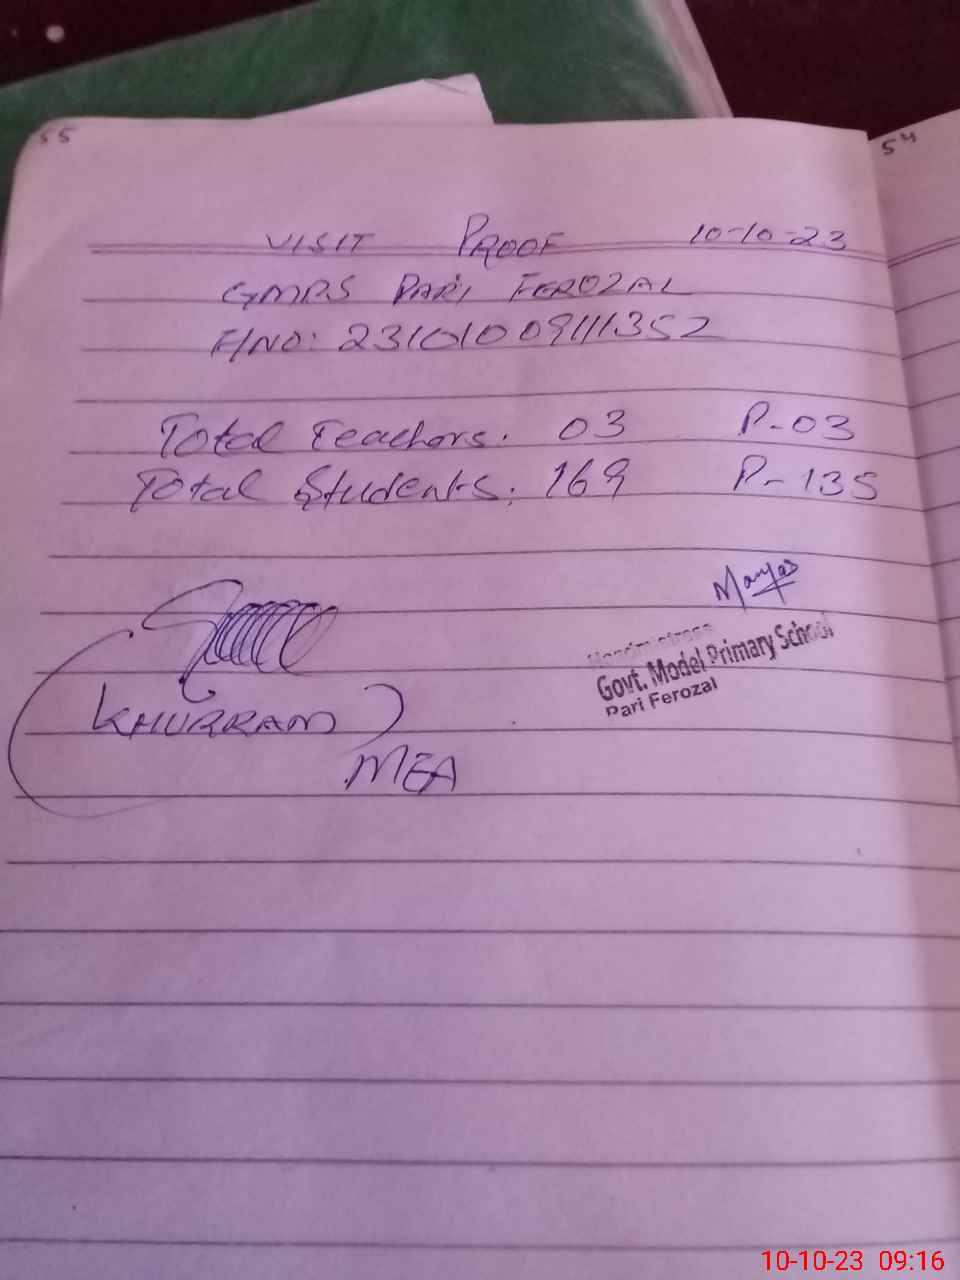 55
54
VISIT PROOF 10-10-23
GMPS PARI FEROZAL
F/NO: 23101009111352
Total Teachers. 03 P-03
Total Students. 169 P-135
Headmistress
Govt. Model Primary School
Pari Ferozal
(KHURRAM)
MEA
10-10-23 09:16